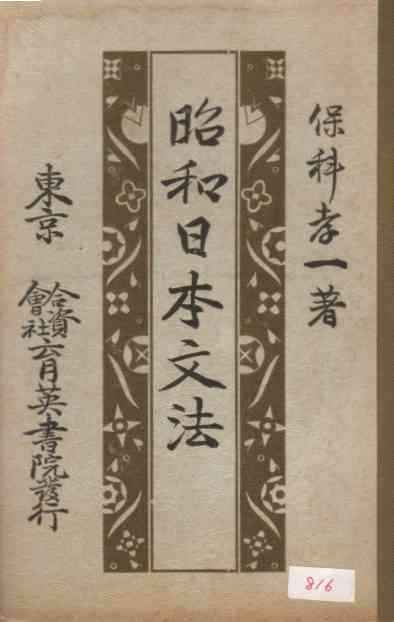 保科孝一著
昭和日本文法
東京 合資會社育英書院發行
816